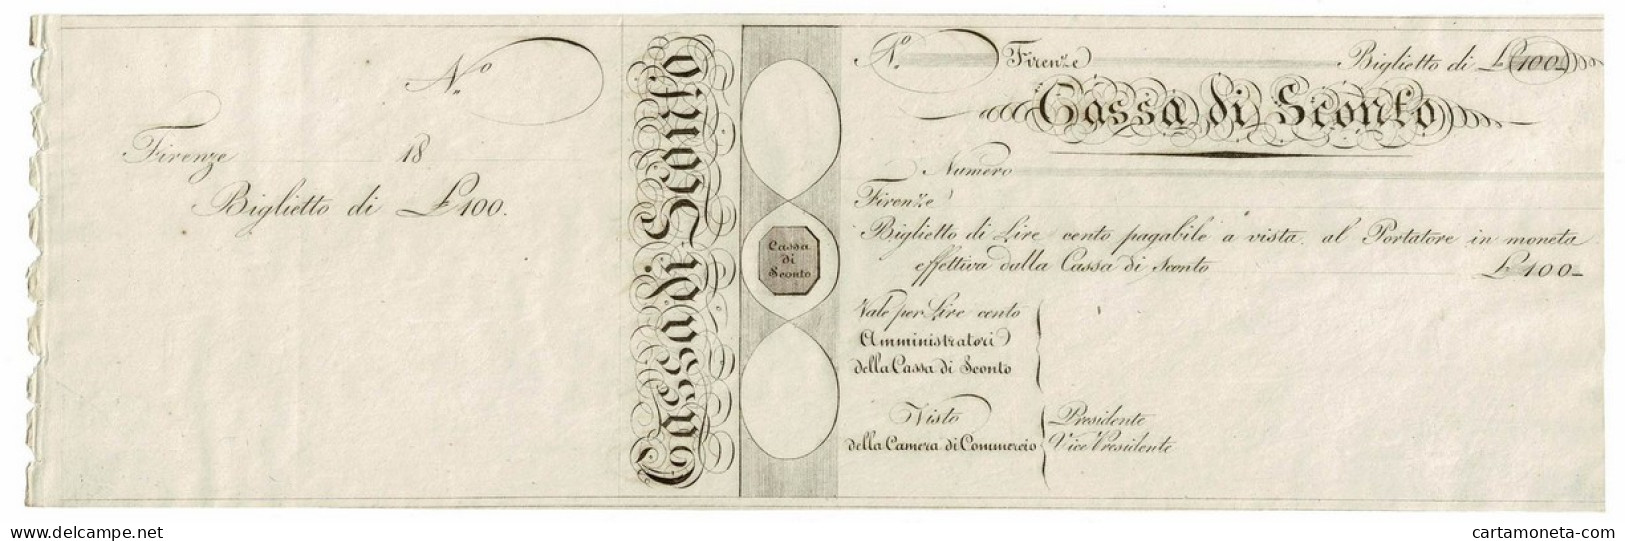 N.o
Firenze 18
Biglietto di £ 100.
Cassa di Sconto
Cassa
di
Sconto
N.o Firenze Biglietto di £ 100
Cassa di Sconto
Numero
Firenze
Biglietto di Lire cento pagabile a vista al Portatore in moneta
effettiva dalla Cassa di Sconto £ 100
Vale per Lire cento
Amministratori
della Cassa di Sconto
Visto
della Camera di Commercio
Presidente
Vice Presidente
© www.delcampe.net
cartamoneta-com